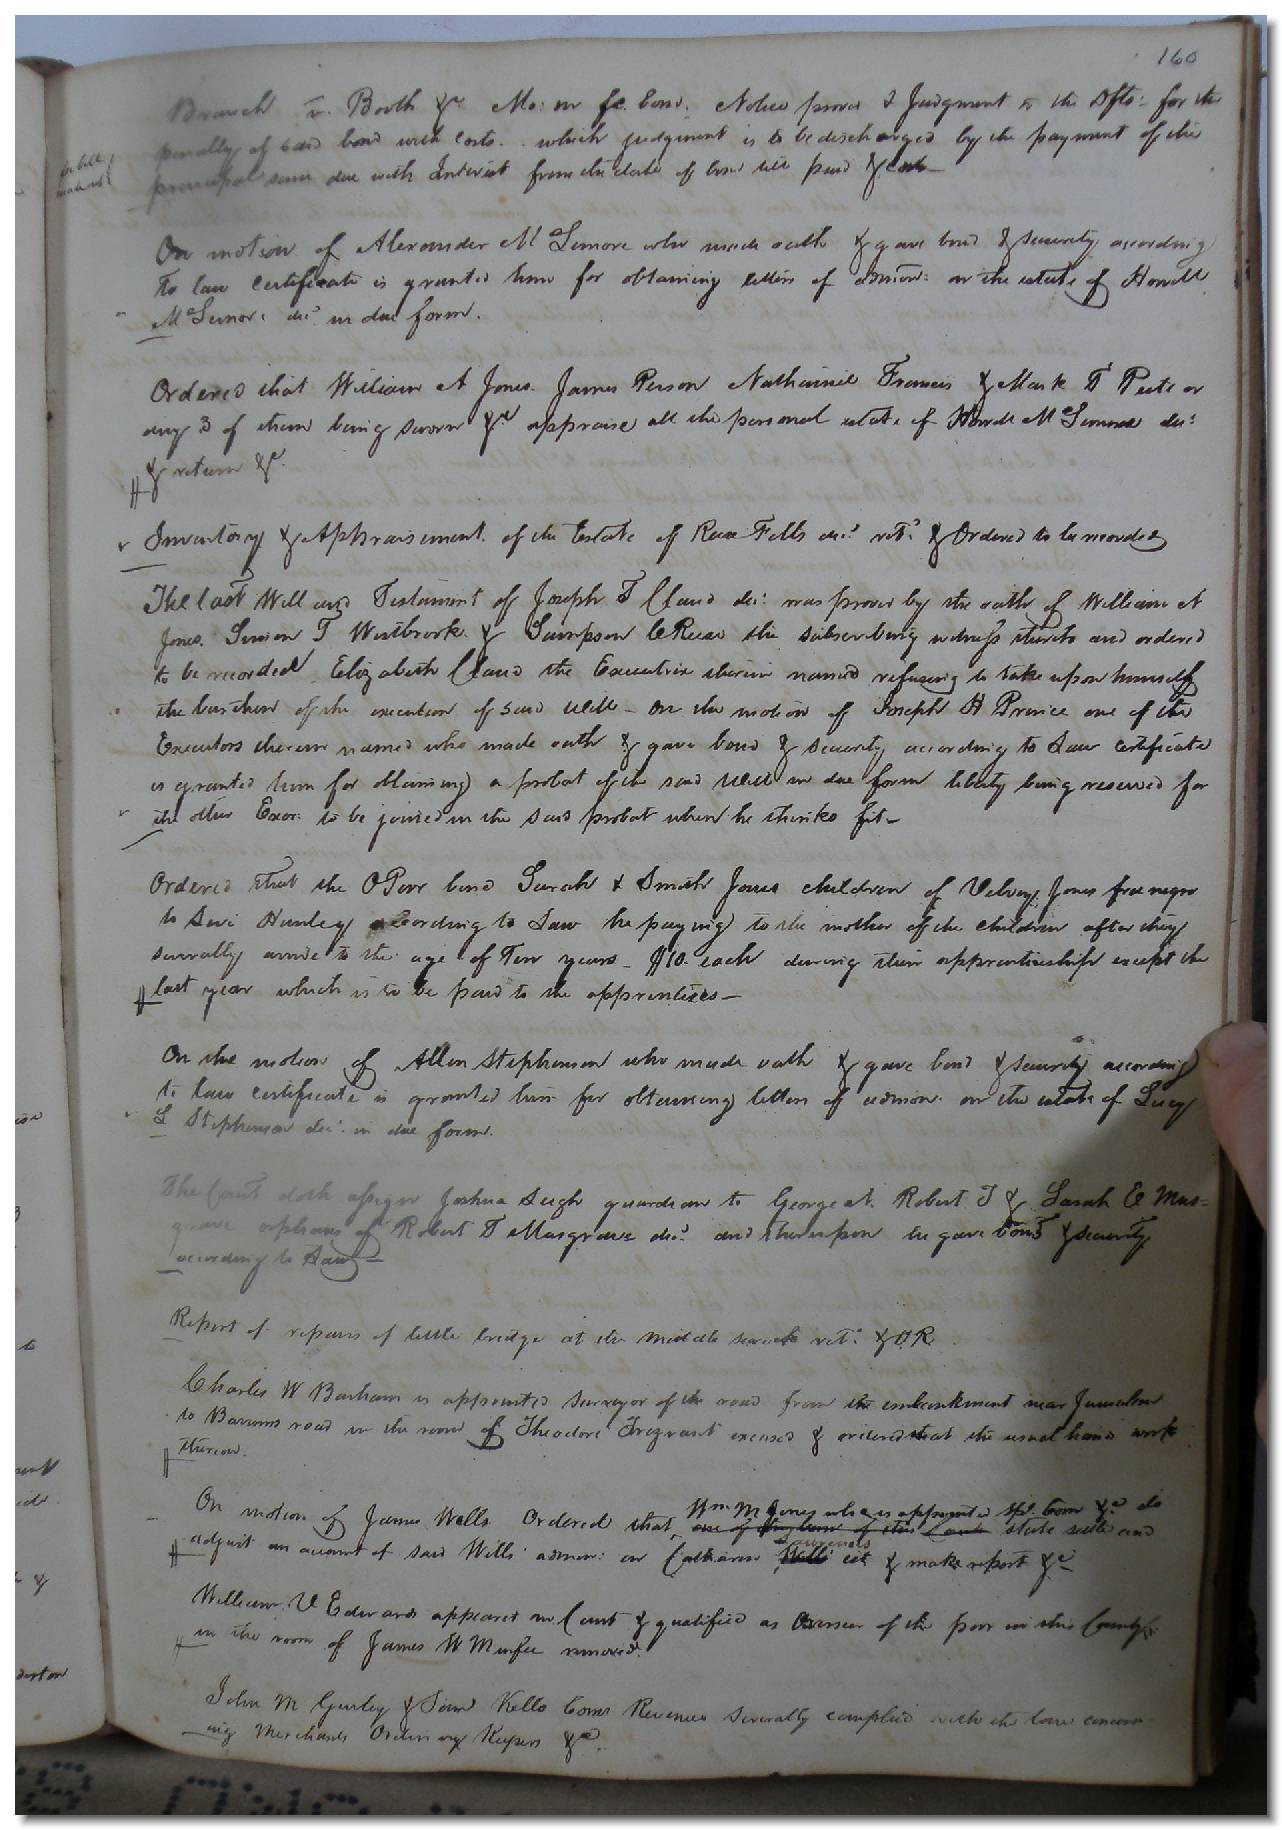 160
Branch v. Booth &c. Mo: on fc. bond. Notice proved & Judgment vs the Defts: for the
penalty of said bond with costs. which judgment is to be discharged by the payment of the
principal sum due with Interest from the date of bond till paid & costs
On motion of Alexander McLemore who made oath & gave bond & security according
to law certificate is granted him for obtaining letters of admon: on the estate of Howell
McLemore dec'd in due form.
Ordered that William A Jones James Person Nathaniel Francis & Mark T Peete or
any 3 of them being sworn &c appraise all the personal estate of Howell McLemore dec:
& return &c.
Inventory & Appraisement of the Estate of Felts dec'd ret'd & Ordered to be recorded
The last Will and Testament of Joseph T Claud dec: was proved by the oath of William A
Jones. Simon T Westbrook & Sampson C Reese the subscribing witness thereto and ordered
to be recorded Elizabeth Claud the Executrix therein named refusing to take upon himself
the burthen of the execution of said will - On the motion of Joseph H Prince one of the
Executors therein named who made oath & gave bond & security according to Law certificate
is granted him for obtaining a probat of the said Will in due form liberty being reserved for
the other Exor: to be joined in the said probat when he thinks fit -
Ordered that the OPoor bind Sarah & Smith Jones children of Velvey Jones free negro
to Levi Hanley according to Law he paying to the mother of the children after they
severally arrive to the age of Ten years - $10. each during their apprenticeship except the
last year which is to be paid to the apprentices -
On the motion of Allen Stephenson who made oath & gave bond & security according
to law certificate is granted him for obtaining letters of admon: on the estate of Lucy
L Stephenson dec'd in due form.
The Court doth assign Joshua Leigh guardian to George A. Robert T & Sarah E Mus=
grave orphans of Robert T Musgrave dec'd and thereupon he gave bond & security
according to Law -
Report of repairs of little bridge at the middle ret'd & OR
Charles W Barham is appointed Surveyor of the road from the embankment near Jerusalem
to Barrows road in the room of Theodore Trezvant excused & ordered that the usual hands work
thereon.
Wm M Jones who is appointed Spl. Com &c do
On motion of James Wells Ordered that one of the of this Court state settle and
adjust an account of said Wells' admon: on Catharine est & make report &c
William V Edwards appeared in Court & qualified as Overseer of the poor in this County
in the room of James W Murfee removed.
John M Gurley & Sam'l Kello Coms Revenue severally complied with the law concern
ing Merchants Ordinary Keepers &c.